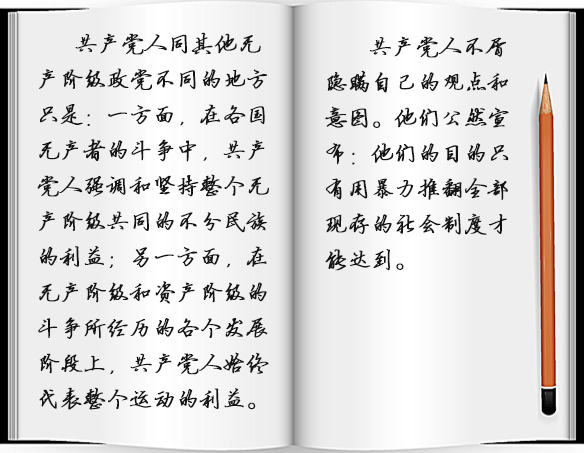 共产党人同其他无
产阶级政党不同的地方
只是：一方面，在各国
无产者的斗争中，共产
党人强调和坚持整个无
产阶级共同的不分民族
的利益；另一方面，在
无产阶级和资产阶级的
斗争所经历的各个发展
阶段上，共产党人始终
代表整个运动的利益。
共产党人不屑
隐瞒自己的观点和
意图。他们公然宣
布：他们的目的只
有用暴力推翻全部
现存的社会制度才
能达到。